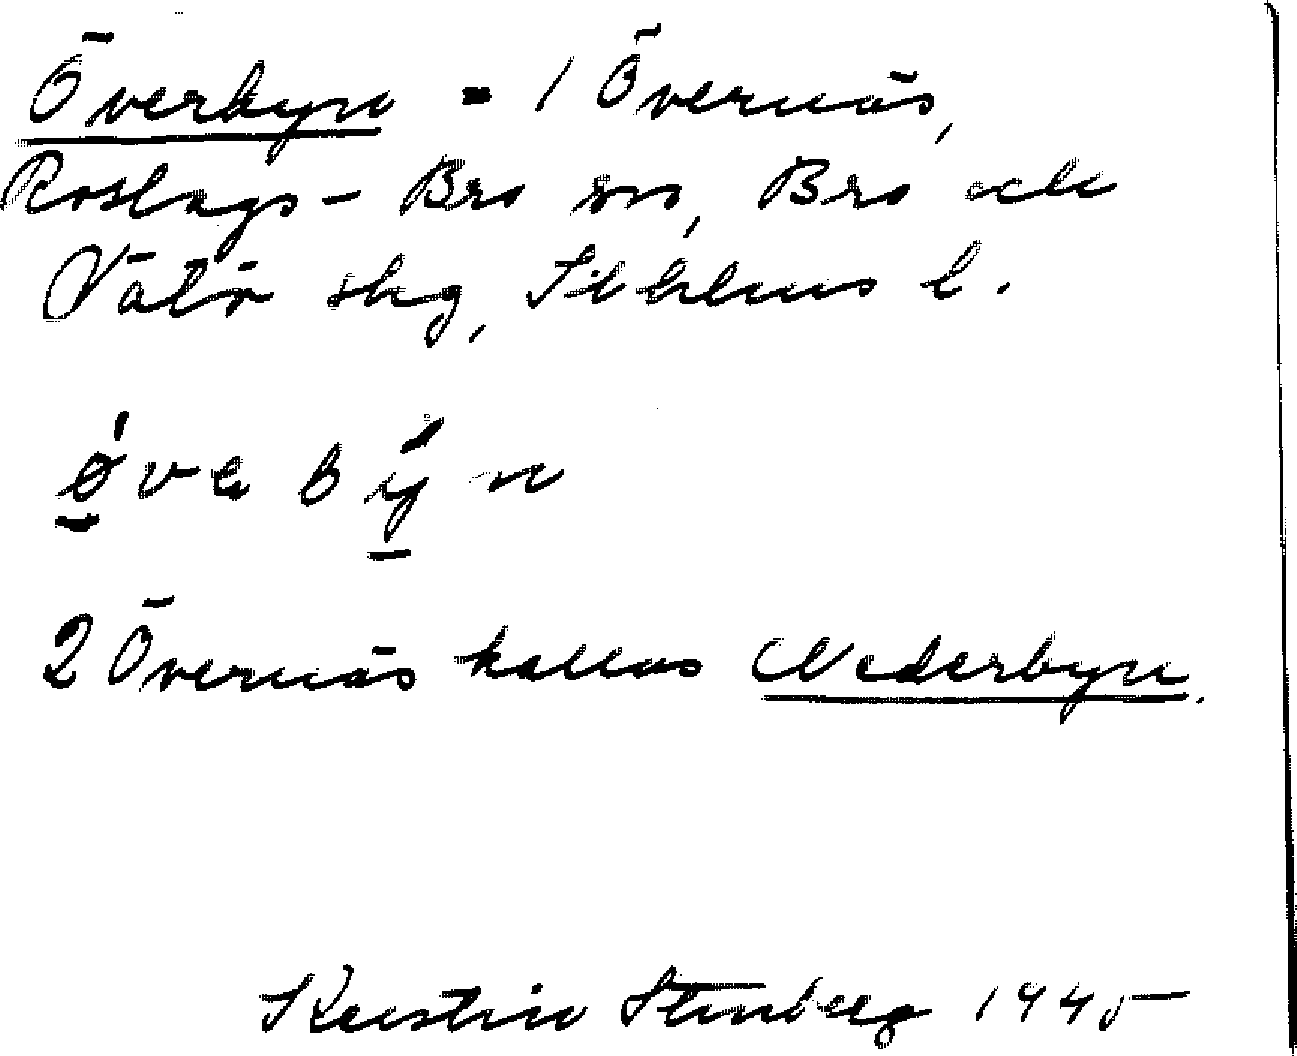 Överbyn = 1 Övernäs,
Roslags-Bro sn, Bro och
Vätö skg, Sthlms l.
øvabyn
2 Övernäs kallas Nederbyn.
Kerstin Stenberg 1945